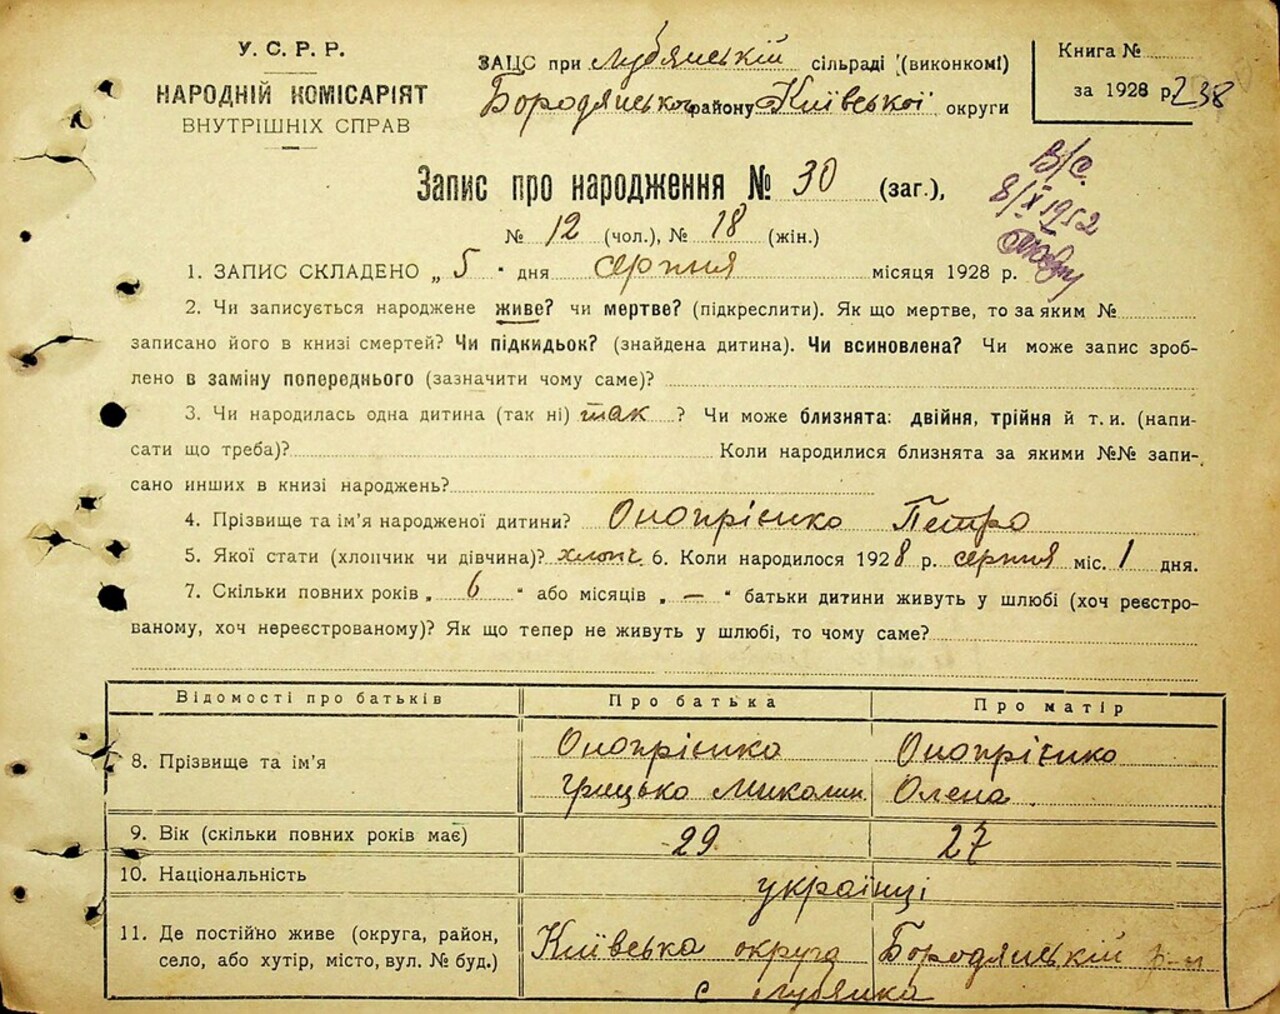 У. С. Р. Р.
НАРОДНІЙ КОМІСАРІЯТ
ВНУТРІШНІХ СПРАВ
ЗАЦС при Лубянській сільраді (виконкомі)
Бородянського району Київської округи
Книга №
за 1928 р. 238
В/С.
8/X 1952
Запис про народження № 30 (заг.),
№ 12 (чол.), № 18 (жін.)
1. ЗАПИС СКЛАДЕНО „ 5 " дня серпня місяця 1928 р.
2. Чи записується народжене живе? чи мертве? (підкреслити). Як що мертве, то за яким №
записано його в книзі смертей? Чи підкидьок? (знайдена дитина). Чи всиновлена? Чи може запис зроб-
лено в заміну попереднього (зазначити чому саме)?
3. Чи народилась одна дитина (так ні) так ? Чи може близнята: двійня, трійня й т. и. (напи-
сати що треба)? Коли народилися близнята за якими №№ запи-
сано инших в книзі народжень?
4. Прізвище та ім'я народженої дитини? Онопрієнко Петро
5. Якої стати (хлопчик чи дівчина)? хлопч. 6. Коли народилося 1928 р. серпня міс. 1 дня.
7. Скільки повних років „ 6 " або місяців „ — " батьки дитини живуть у шлюбі (хоч реєстро-
ваному, хоч нереєстрованому)? Як що тепер не живуть у шлюбі, то чому саме?
Відомості про батьків Про батька Про матір
8. Прізвище та ім'я Онопрієнко Онопрієнко
Грицько Миколин Олена
9. Вік (скільки повних років має) 29 27
10. Національність українці
11. Де постійно живе (округа, район, Київська округа Бородянській р-н
село, або хутір, місто, вул. № буд.) с Лубянка